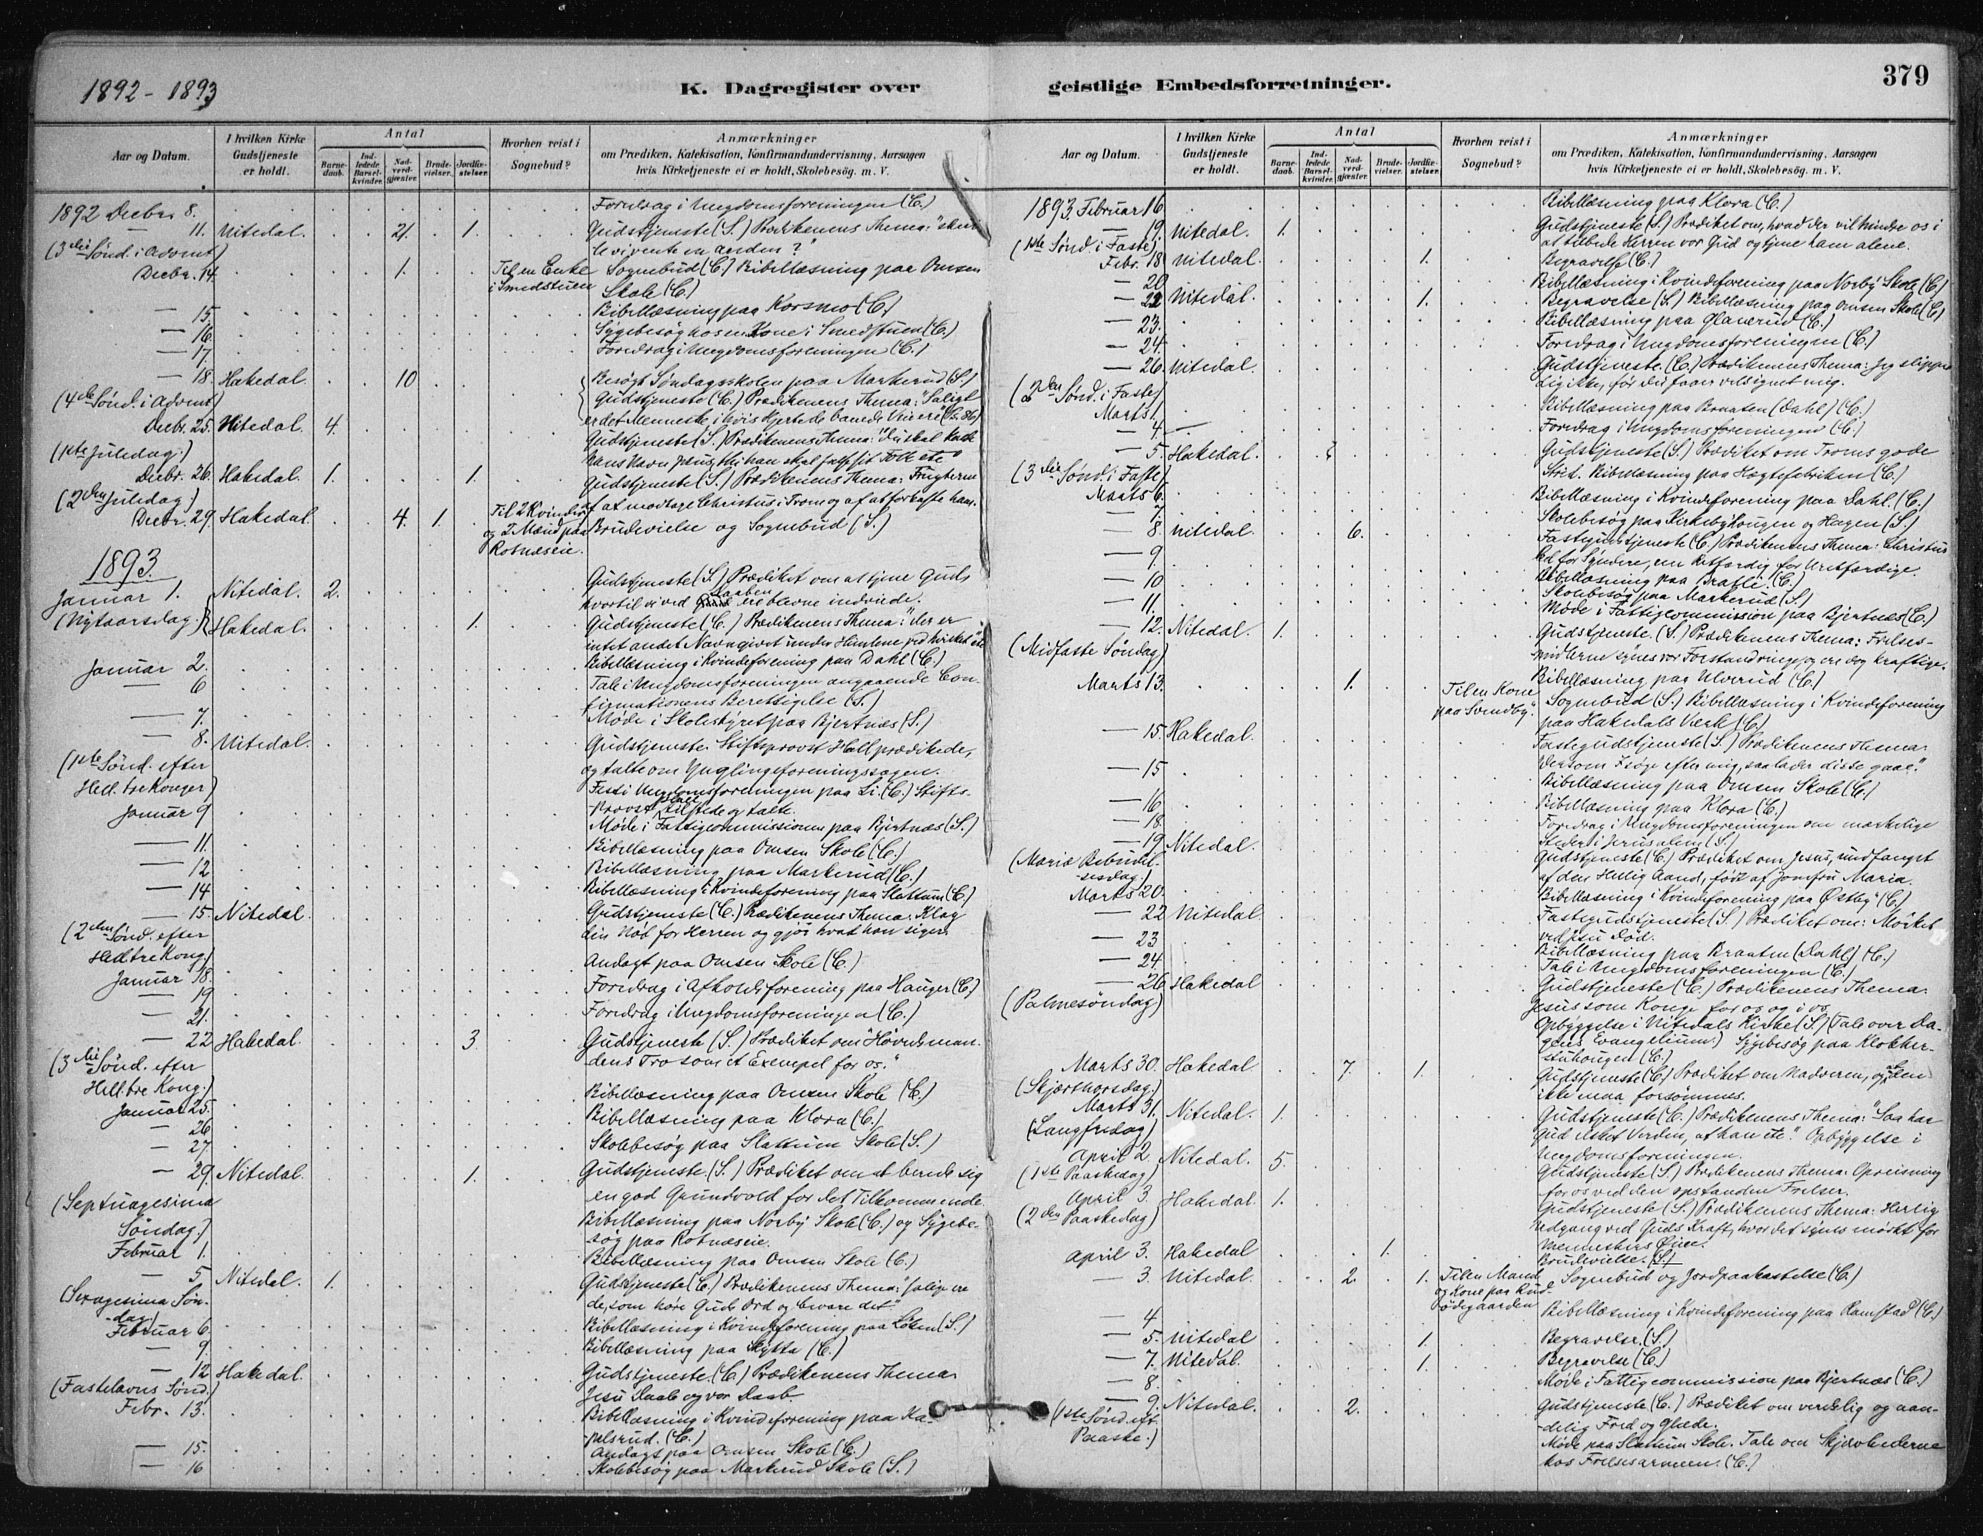 1892 - 1893
K. Dagregister over geistlige Embedsforretninger.
379
Aar og Datum.
I hvilken Kirke Gudstjeneste er holdt.
Antal
Barne-daab.
Ind-ledede Barsel-kvinder.
Nad-verd-gjæster.
Brude-vielser.
Jordfæ-stelser.
Hvorhen reist i Sognebud?
Anmærkninger
om Prædiken, Katekisation, Konfirmandundervisning, Aarsagen
hvis Kirketjeneste ei er holdt, Skolebesøg. m. V.
1892 Decbr 8. Foredrag i Ungdomsforeningen (C.)
— 11. Nitedal. 21. 1. Gudstjeneste (S.) Prædikenens Thema: "skulle
(3die Sønd. i Advent) vi vente en anden?"
Decbr. 14. 1. Til en Enke i Smedstuen Sognebud (C.) Bibellæsning paa Omsen
Skole (C.)
— 15. Bibellæsning paa Korsmo (C.)
— 16. Sygebesøg hos en Kone i Smedstuen (C.)
— 17. Foredrag i Ungdomsforeningen (C.)
— 18. Hakedal. 10 Besøgt Søndagsskolen paa Markerud (S.)
(4de Sønd. i Advent) Gudstjeneste (C.) Prædikenens Thema: Saligt
er det Menneske i hvis Hjerte de banede Veie ere (Ps. 84)
Decbr. 25. Nitedal. 4. Gudstjeneste (S.) Prædikenens Thema: "Du skal kalde
(1ste Juledag.) hans Navn Jesus thi han skal frelse sit Folk etc"
Decbr. 26. Hakedal. 1. 1. Gudstjeneste (S.) Prædikenens Thema: Frugterne
(2den Juledag.) af at modtage Christus i Troen og af at forkaste ham.
Decbr. 29. Hakedal. 4. 1. Til 2 Kvinder og 2 Mænd paa Rotnæseie. Brudevielse og Sognebud (S.)
1893.
Januar 1. Nitedal. 2. Gudstjeneste (S.) Prædiket om at tjene Gud
(Nytaarsdag) hvortil vi ved Daaben ere blevne indviede.
Hakedal. 1. Gudstjeneste (C.) Prædikenens Thema: "der er
intet andet Navn givet under Himlene ved hvilket" etc
Januar 2. Bibellæsning i Kvindeforening paa Dahl (C.)
— 6 Tale i Ungdomsforeningen angaaende Con-
firmationens Berettigelse (S.)
— 7. Møde i Skolestyret paa Bjertnæs (S.)
— 8. Nitedal. Gudstjeneste. Stiftsprovst Hall prædikede,
(1ste Sønd. efter og talte om Ynglingeforeningssagen.
Hell. tre Konger) Fest i Ungdomsforeningen paa Li. (C.) Stifts-
Januar 9 provst Hall tilstede og talte.
Møde i Fattigcommissionen paa Bjertnæs (S.)
— 11. Bibellæsning paa Omsen Skole (C.)
— 12 Bibellæsning paa Markerud (C.)
— 14 Bibellæsning i Kvindeforening paa Slattum (C.)
— 15. Nitedal. Gudstjeneste (C.) Prædikenens Thema: Klag
(2den Sønd. efter din Nød for Herren og gjør hvad han siger.
Hell. tre Kong.)
Januar 18. Andagt paa Omsen Skole (C.)
— 19 Foredrag i Afholdsforening paa Hauger (C.)
— 21. Foredrag i Ungdomsforeningen (C.)
— 22 Hakedal. 3. Gudstjeneste (S.) Prædiket om "Høvedsman-
(3die Sønd. efter dens Tro som et Exempel for os."
Hell. tre Kong.)
Januar 25. Bibellæsning paa Omsen Skole (C.)
— 26 Bibellæsning paa Klora (C.)
— 27. Skolebesøg paa Slattum Skole (S.)
— 29. Nitedal. 1. Gudstjeneste (S.) Prædiket om at berede sig
(Septuagesima en god Grundvold for det Tilkommende.
Søndag.) Bibellæsning paa Norby Skole (C.) og Sygebe-
søg paa Rotnæseie.
Februar 1. Bibellæsning paa Omsen Skole (C.)
— 5 Nitedal. 1. Gudstjeneste (C.) Prædikenens Thema: "salige ere
(Sexagesima Søn- de, som høre Guds Ord og bevare det"
dag)
Februar 6. Bibellæsning i Kvindeforening paa Løken (S.)
— 9. Bibellæsning paa Skytta (C.)
— 12 Hakedal. Gudstjeneste (C.) Prædikenens Thema
(Fastelavns Sønd.) Jesu Daab og vor Daab.
Febr. 13. Bibellæsning i Kvindeforening paa Ka-
pelsrud. (C.)
— 15. Andagt paa Omsen Skole (C.)
— 16 Skolebesøg paa Markerud Skole (S.)
Aar og Datum.
I hvilken Kirke Gudstjeneste er holdt.
Antal
Barne-daab.
Ind-ledede Barsel-kvinder.
Nad-verd-gjæster.
Brude-vielser.
Jordfæ-stelser.
Hvorhen reist i Sognebud?
Anmærkninger
om Prædiken, Katekisation, Konfirmandundervisning, Aarsagen
hvis Kirketjeneste ei er holdt, Skolebesøg. m. V.
1893. Februar 16 Bibellæsning paa Klora (C.)
— 19. Nitedal. 1. Gudstjeneste (S.) Prædiket om, hvad der vil hindre os i
(1ste Sønd. i Faste) at tilbede Herren vor Gud og tjene ham alene.
Febr. 18 Nitedal. 1. Begravelse (C.)
— 20 Bibellæsning i Kvindeforening paa Norby Skole (C.)
— 22 Nitedal. 1. Begravelse (S.) Bibellæsning paa Omsen Skole (C.)
— 23. Bibellæsning paa Glaserud (C.)
— 24. Foredrag i Ungdomsforeningen (C.)
— 26. Nitedal. Gudstjeneste. (C.) Prædikenens Thema: Jeg slipper
(2den Sønd. i Faste) dig ikke, før du faar velsignet mig.
Marts 1. Bibellæsning paa Braaten (Dahl) (C.)
— 4. Foredrag i Ungdomsforeningen (C.)
— 5. Hakedal. Gudstjeneste (S.) Prædiket om Troens gode
(3die Sønd. i Faste) Strid. Bibellæsning paa Hægtefabriken (C.)
Marts 6. Bibellæsning i Kvindeforening paa Dahl. (C.)
— 7. Skolebesøg paa Kirkebyhaugen og Hagen (S.)
— 8. Nitedal. 6. Fastegudstjeneste (C.) Prædikenens Thema: Christus
led for Syndere, en Retfærdig for Uretfærdige.
— 9. Bibellæsning paa (C.)
— 10 Skolebesøg paa Markerud (S.)
— 11. Møde i Fattigcommission paa Bjertnæs (C.)
— 12. Nitedal. 1. Gudstjeneste. (S.) Prædikenens Thema: Frelses-
(Midfaste Søndag) midlerne synes vor Forstand ringe, og ere dog kraftige.
Bibellæsning paa Ulverud (C.)
Marts 13. 1. Til en Kone paa Svendby. Sognebud (S.) Bibellæsning i Kvindeforening
paa Hakedals Værk (C.)
— 15. Hakedal. Fastegudstjeneste (S.) Prædikenens Thema:
Dersom I søge efter mig, saa lader disse gaae."
— 15 Bibellæsning paa Omsen Skole (C.)
— 16 Bibellæsning paa Klora (C.)
— 18. Foredrag i Ungdomsforeningen om mærkelige
Steder i Jerusalem (S.)
— 19 Nitedal. Gudstjeneste (C.) Prædiket om Jesus, undfanget
(Mariæ Bebudel- af den Hellig Aand, født af Jomfru Maria.
sesdag.)
Marts 20. Bibellæsning i Kvindeforening paa Østby (C.)
— 22 Nitedal. Fastegudstjeneste (S.) Prædiket om: Mørket
ved Jesu Død.
— 23 Bibellæsning paa Braaten (Dahl) (C.)
— 24 Tale i Ungdomsforeningen (C.)
— 26 Hakedal Gudstjeneste (C.) Prædikenens Thema:
(Palmesøndag) Jesus som Konge for os og i os
Opbyggelse i Nitedals Kirke (S.) (Tale over Da-
gens Evangelium.) Sygebesøg paa Klokker-
stuhaugen (C.)
Marts 30. Hakedal 7. 1. Gudstjeneste (C.) Prædiket om Nadveren, og at den
(Skjærthorsdag.) ikke maa forsømmes.
Marts 31. Nitedal. 1. Gudstjeneste (C.) Prædikenens Thema: "Saa har
(Langfredag) Gud elsket Verden, at han etc". Opbyggelse i
Ungdomsforeningen.
April 2. Nitedal. 5. Gudstjeneste (S.) Prædikenens Thema: Opreisning
(1ste Paaskedag) for os ved den opstanden Frelser.
April 3. Hakedal. 1. Gudstjeneste (S.) Prædikenens Thema: Herlig
(2den Paaskedag) Udgang ved Guds Kraft, hvor det synes mørkt for
Menneskers Øine.
April 3. Hakedal 1. Brudevielse. (S.)
— 3. Nitedal 2. 1. Til en Mand og Kone paa Rud-ødegaarden Sognebud og Jordpaakastelse (C.)
— 4 Bibellæsning i Kvindeforening paa Ramstad (C.)
— 5. Nitedal 1. Begravelse. (S.)
— 7. Nitedal. 1. Begravelse (C.)
— 8. Møde i Fattigcommission paa Bjertnæs (C.)
— 9. Nitedal. 2. Gudstjeneste (C.) Prædiket om verdslig og aan-
(1ste Sønd. eft. delig Fred og Glæde.
Paaske.) Møde paa Slattum Skole. Tale om Skjævhederne
hos Frelsesarmeen. (C.)